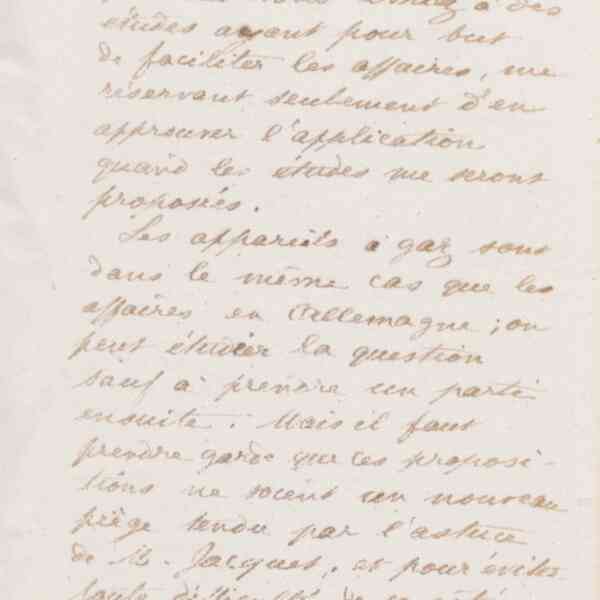 à des
études ayant pour but
de faciliter les affaires, me
réservant seulement d'en
approuver l'application
quand les études me seront
proposés.
Les appareils à gaz sont
dans le même cas que les
affaires en Allemagne ; on
peut étudier la question
sauf à prendre un parti
ensuite. Mais il faut
prendre garde que ces proposi-
tions ne soient un nouveau
piège tendu par l'astuce
de M. Jacques, et pour éviter
toute difficulté de ce côté